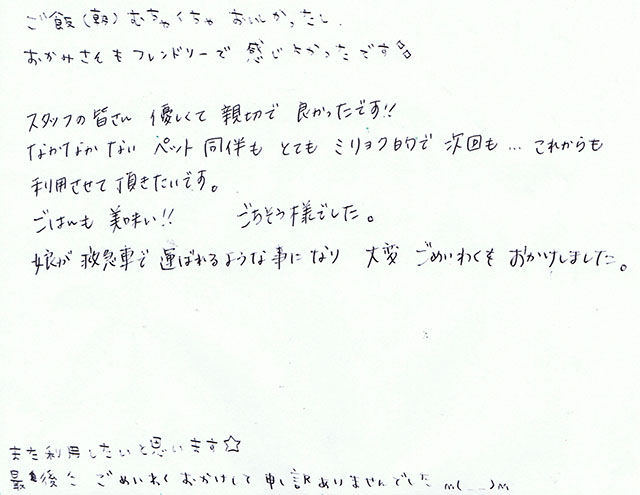 ご飯(朝)むちゃくちゃ おいしかったし、
おかみさんもフレンドリーで 感じよかったです
スタッフの皆さん 優しくて 親切で 良かったです!!
なかなかない ペット同伴も とても ミリョク的で 次回も… これからも
利用させて頂きたいです。
ごはんも 美味い!! ごちそう様でした。
娘が 救急車で 運ばれるような事になり 大変 ごめいわくを おかけしました。
また利用したいと思います☆
最後に ごめいわくおかけして 申し訳ありませんでした m(__)m